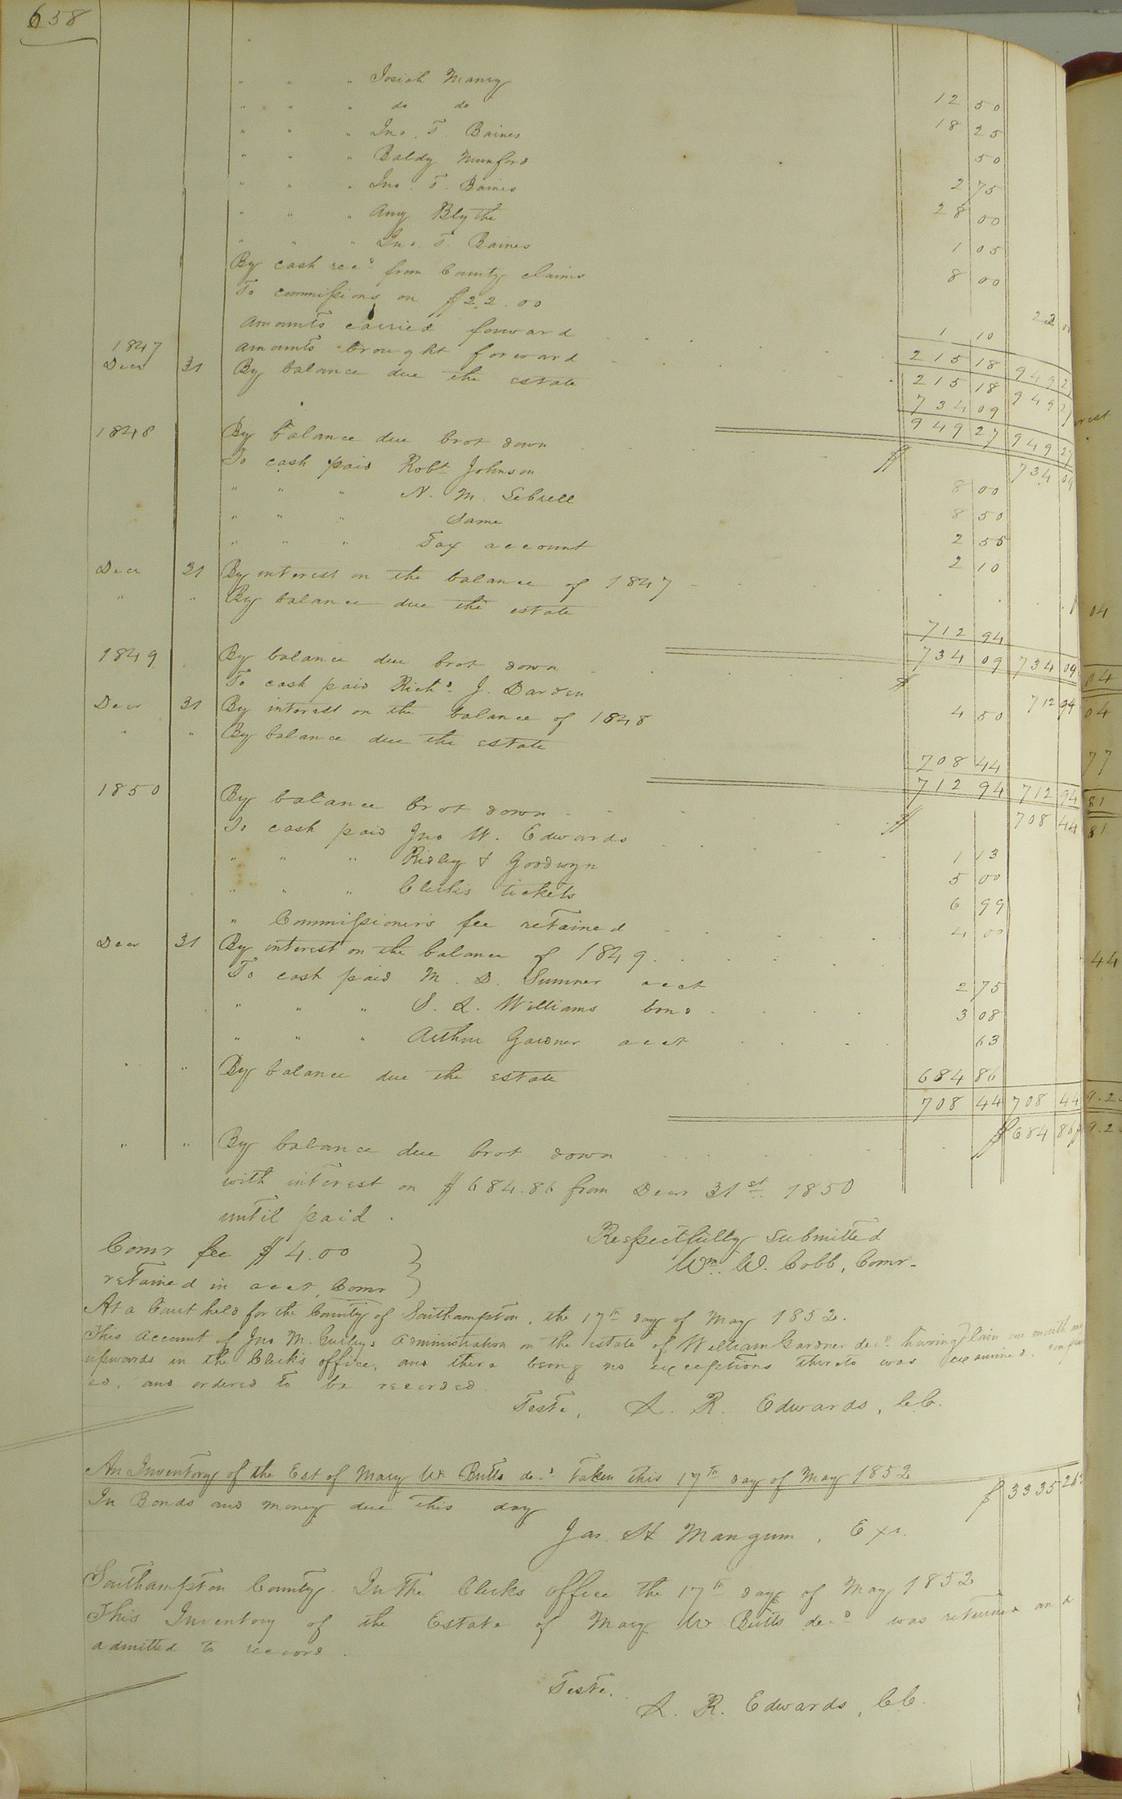 658
" " " Josiah Maney 12 50
" " " do do 18 25
" " " Jno. T. Baines 50
" " " Baldy Munford 2 75
" " " Jno. T. Baines 28 00
" " " Amy Blythe 1 05
" " " Jno. T. Baines 8 00
By cash recd from County claims 22 00
To commissions on $22.00 1 10
Amounts carried forward 215 18 949 27
1847 Amounts brought forward 215 18 949 27
Decr 31 By balance due the estate 734 09
949 27 949 27
1848 By balance due brot down $ 734 09
To cash paid Robt Johnson 8 00
" " " N. M. Sebrell 8 50
" " " Same 2 55
" " " Tax account 2 10
Decr 31 By interest on the balance of 1847
" " By balance due the estate 712 94
734 09 734 09
1849 By balance due brot down $ 712 94
To cash paid Richd J. Darden 4 50
Decr 31 By interest on the balance of 1848
" " By balance due the estate 708 44
712 94 712 94
1850 By balance brot down $ 708 44
To cash paid Jno W. Edwards 1 13
" " " Ridley & Goodwyn 5 00
" " " Clerks tickets 6 99
" Commissioners fee retained 4 00
Decr 31 By interest on the balance of 1849
To cash paid M. D. Sumner acct 2 75
" " " S. L. Williams bond 3 08
" " " Arthur Gardner acct 63
" " By balance due the estate 684 86
708 44 708 44
" " By balance due brot down $ 684 86
with interest on $684.86 from Decr 31st 1850
until paid.
Respectfully submitted
Wm. W. Cobb, Comr.
Comr fee $4.00
retained in acct, Comr
At a Court held for the County of Southampton, the 17th day of May 1852.
This Account of Jno M. administration on the estate of William Gardner decd having lain one month
upwards in the Clerk's office, and there being no exceptions thereto was examined,
ed, and ordered to be recorded.
Teste, L. R. Edwards, C.C.
An Inventory of the Est of Mary W. Butts decd taken this 17th day of May 1852
In Bonds and money due this day $ 3335
Jas. H. Mangum, Exr.
Southampton County. In the Clerks office the 17th day of May 1852
This Inventory of the Estate of Mary W Butts decd was returned and
admitted to record.
Teste.
L. R. Edwards, C.C.
04
04
04
77
81
81
44